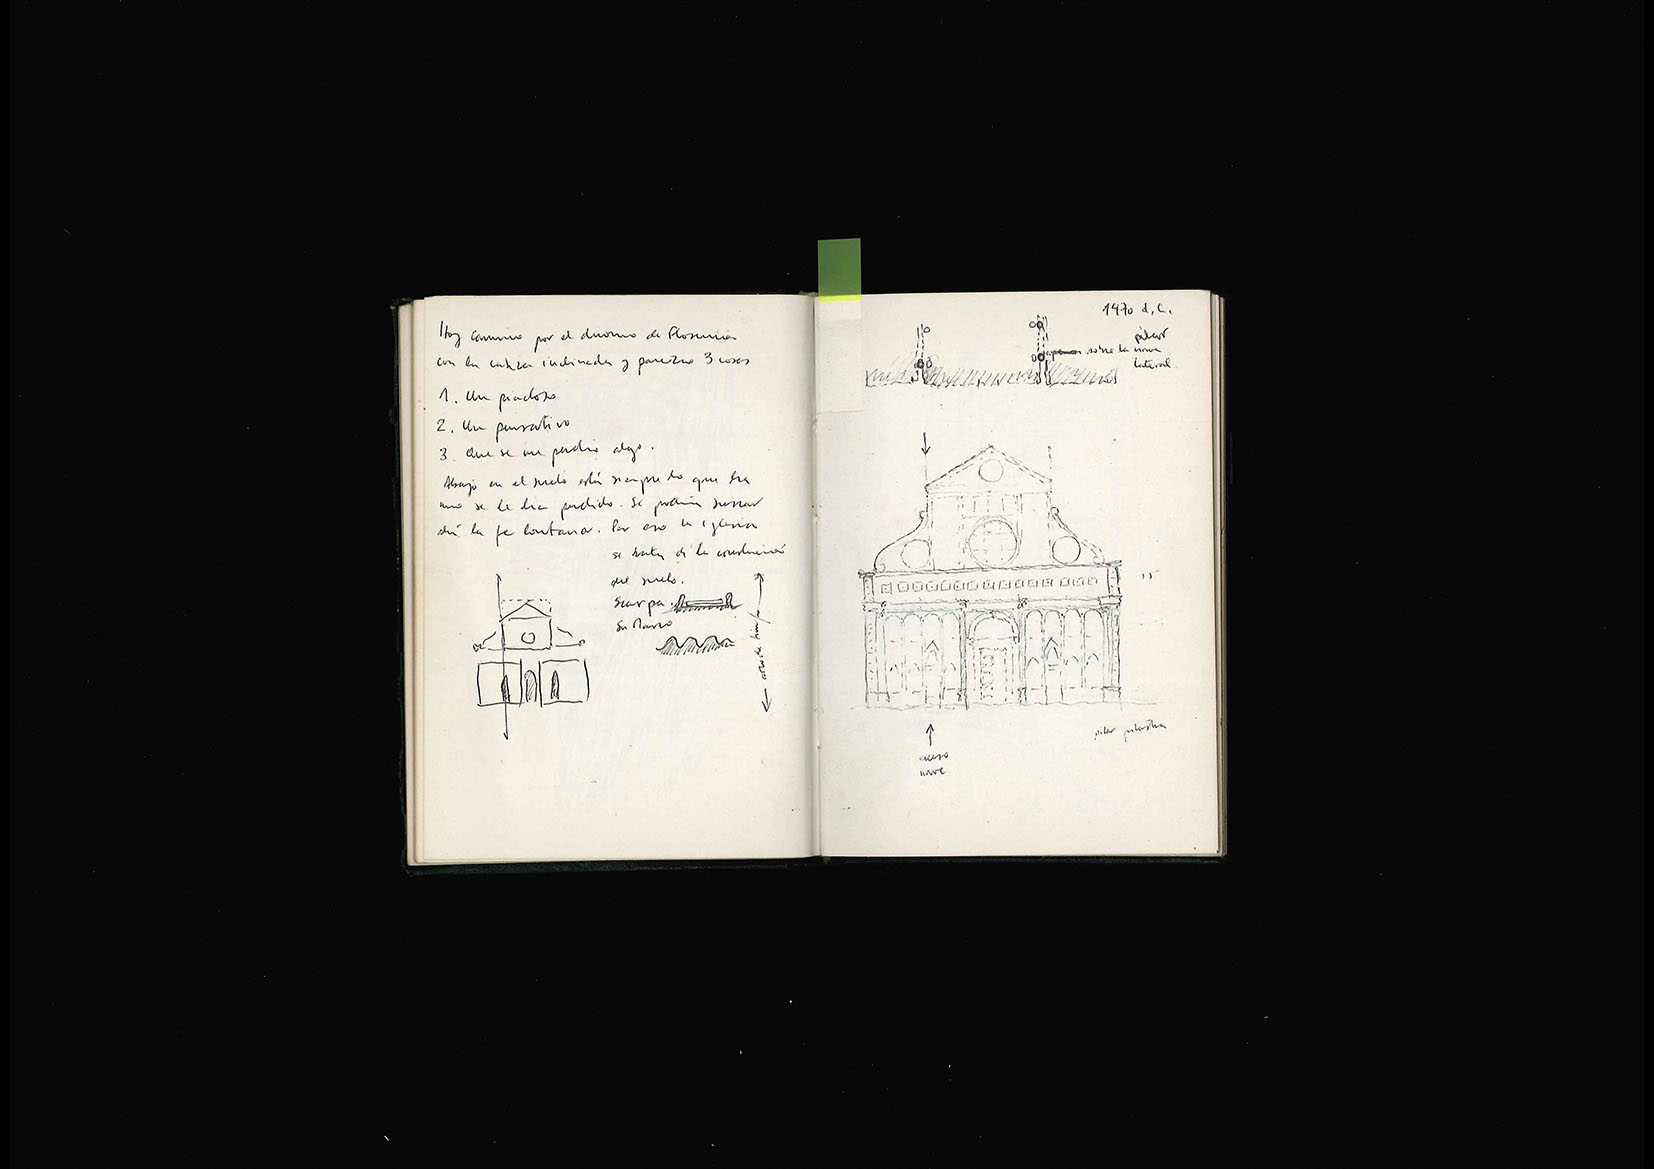 Hoy camino por el duomo de Florencia
con la cabeza inclinada y parezco 3 cosas
1. Un piadoso
2. Un pensativo
3. Que se me perdió algo.
Abajo en el suelo está siempre lo que
uno se le ha perdido. Se podría
la fe. Por eso la iglesia
se trata de la construcción
del suelo.
Scarpa.
San Marco
1470 d.C.
pilar
sobre la nave
lateral
acceso
nave
pilar pilastra